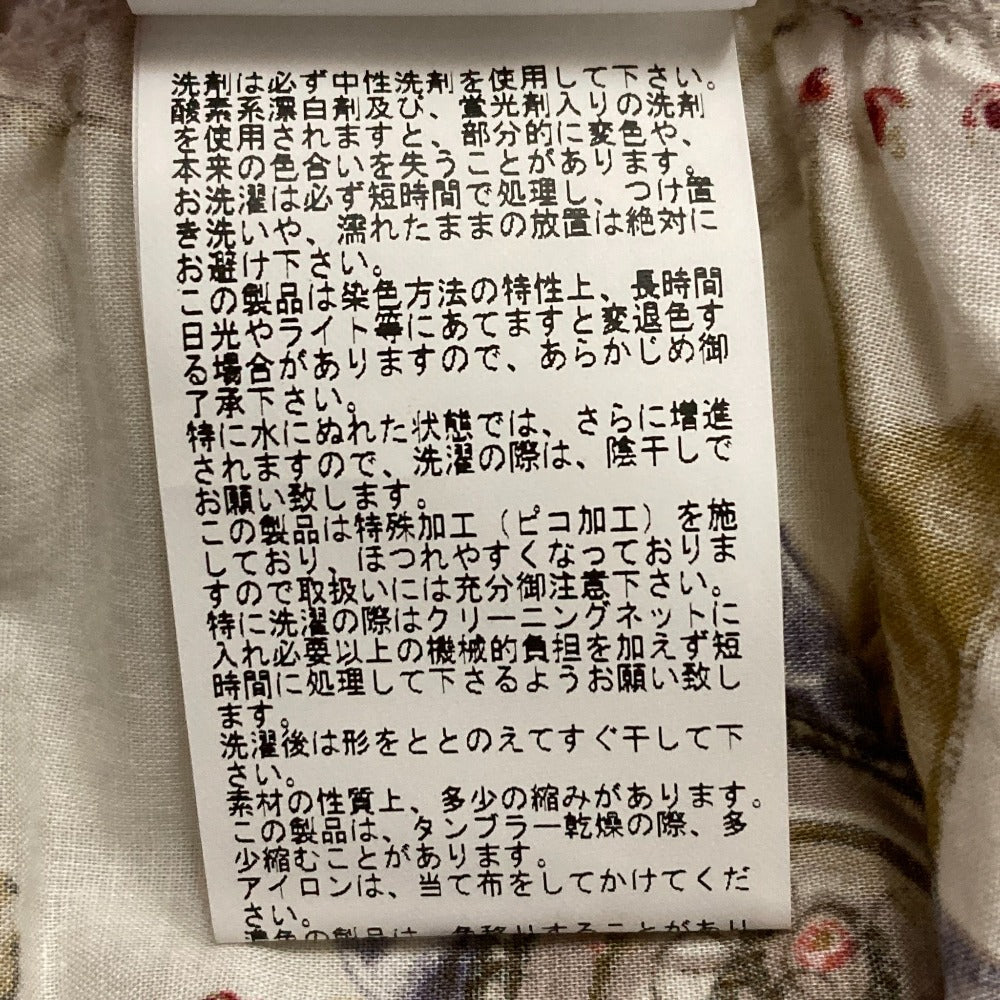 洗剤は必ず中性洗剤を使用して下さい。
酸素系漂白剤及び、蛍光剤入りの洗剤
を使用されますと、部分的に変色や、
本来の色合いを失うことがあります。
お洗濯は必ず短時間で処理し、つけ置
き洗いや、濡れたままの放置は絶対に
お避け下さい。
この製品は染色方法の特性上、長時間
日光やライト等にあてますと変退色す
る場合がありますので、あらかじめ御
了承下さい。
特に水にぬれた状態では、さらに増進
されますので、洗濯の際は、陰干しで
お願い致します。
この製品は特殊加工（ピコ加工）を施
しており、ほつれやすくなっておりま
すので取扱いには充分御注意下さい。
特に洗濯の際はクリーニングネットに
入れ必要以上の機械的負担を加えず短
時間に処理して下さるようお願い致し
ます。
洗濯後は形をととのえてすぐ干して下
さい。
素材の性質上、多少の縮みがあります。
この製品は、タンブラー乾燥の際、多
少縮むことがあります。
アイロンは、当て布をしてかけてくだ
さい。
濃色の製品は、色移りすることがあり